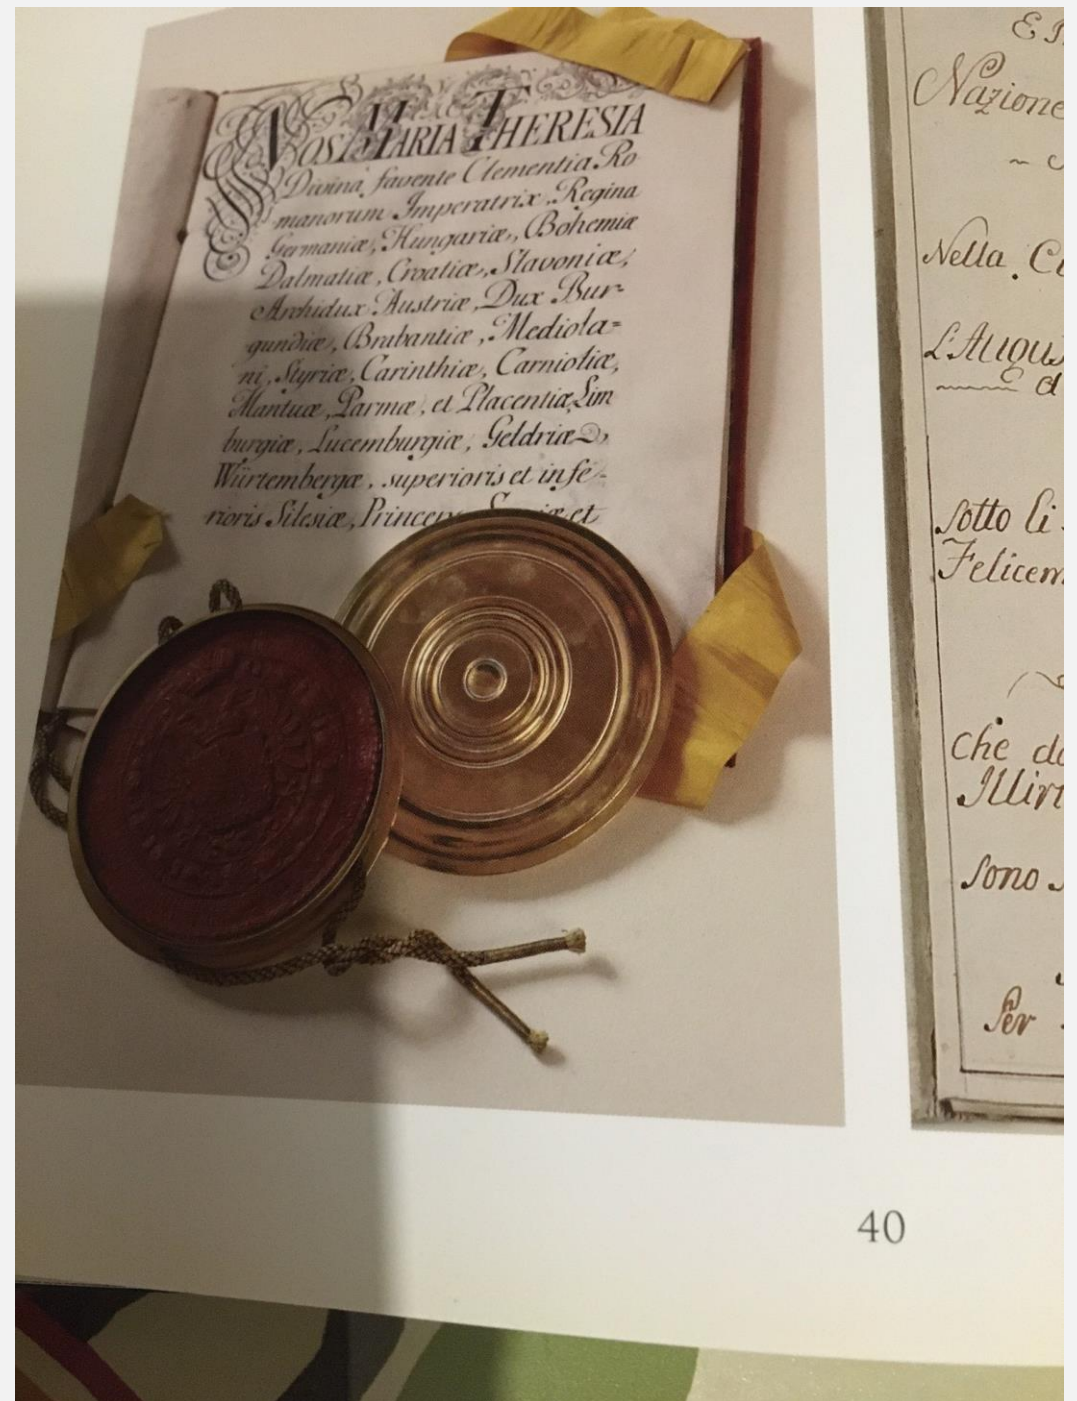 NOS MARIA THERESIA
Divina favente Clementia Ro
manorum Imperatrix, Regina
Germaniæ, Hungariæ, Bohemiæ
Dalmatiæ, Croatiæ, Slavoniæ,
Archidux Austriæ, Dux Bur=
gundiæ, Brabantiæ, Mediola=
ni, Styriæ, Carinthiæ, Carnioliæ,
Mantuæ, Parmæ, et Placentiæ, Lim
burgiæ, Lucemburgiæ, Geldriæ,
Würtembergæ, superioris et infe-
rioris Silesiæ, et
Nazione
Nella
sotto li
che
sono
Per
40